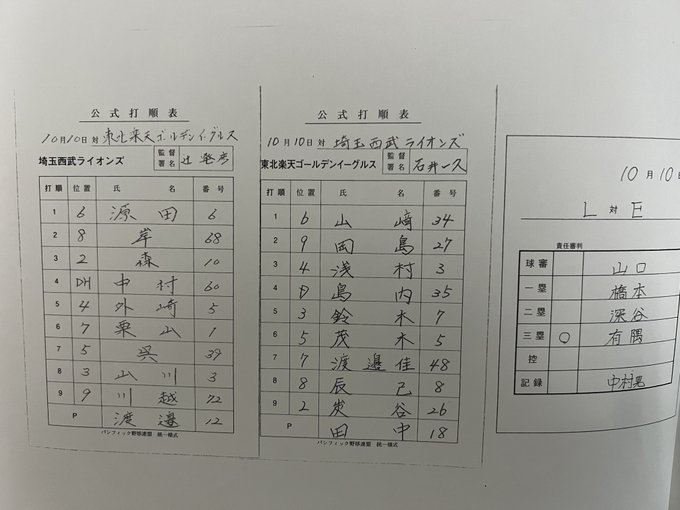 公式打順表
10月10日 対 東北楽天ゴールデンイーグルス
埼玉西武ライオンズ 監督署名 辻 発彦
打順 位置 氏 名 番号
1 6 源田 6
2 8 岸 68
3 2 森 10
4 DH 中村 60
5 4 外崎 5
6 7 栗山 1
7 5 呉 39
8 3 山川 3
9 9 川越 72
P 渡邉 12
パシフィック野球連盟 統一様式
公式打順表
10月10日 対 埼玉西武ライオンズ
東北楽天ゴールデンイーグルス 監督署名 石井一久
打順 位置 氏 名 番号
1 6 山﨑 34
2 9 岡島 27
3 4 浅村 3
4 D 島内 35
5 3 鈴木 7
6 5 茂木 5
7 7 渡邊佳 48
8 8 辰己 8
9 2 炭谷 26
P 田中 18
パシフィック野球連盟 統一様式
10月10日
L 対 E
責任審判
球審 山口
一塁 橋本
二塁 深谷
三塁 ○ 有隅
控
記録 中村晃